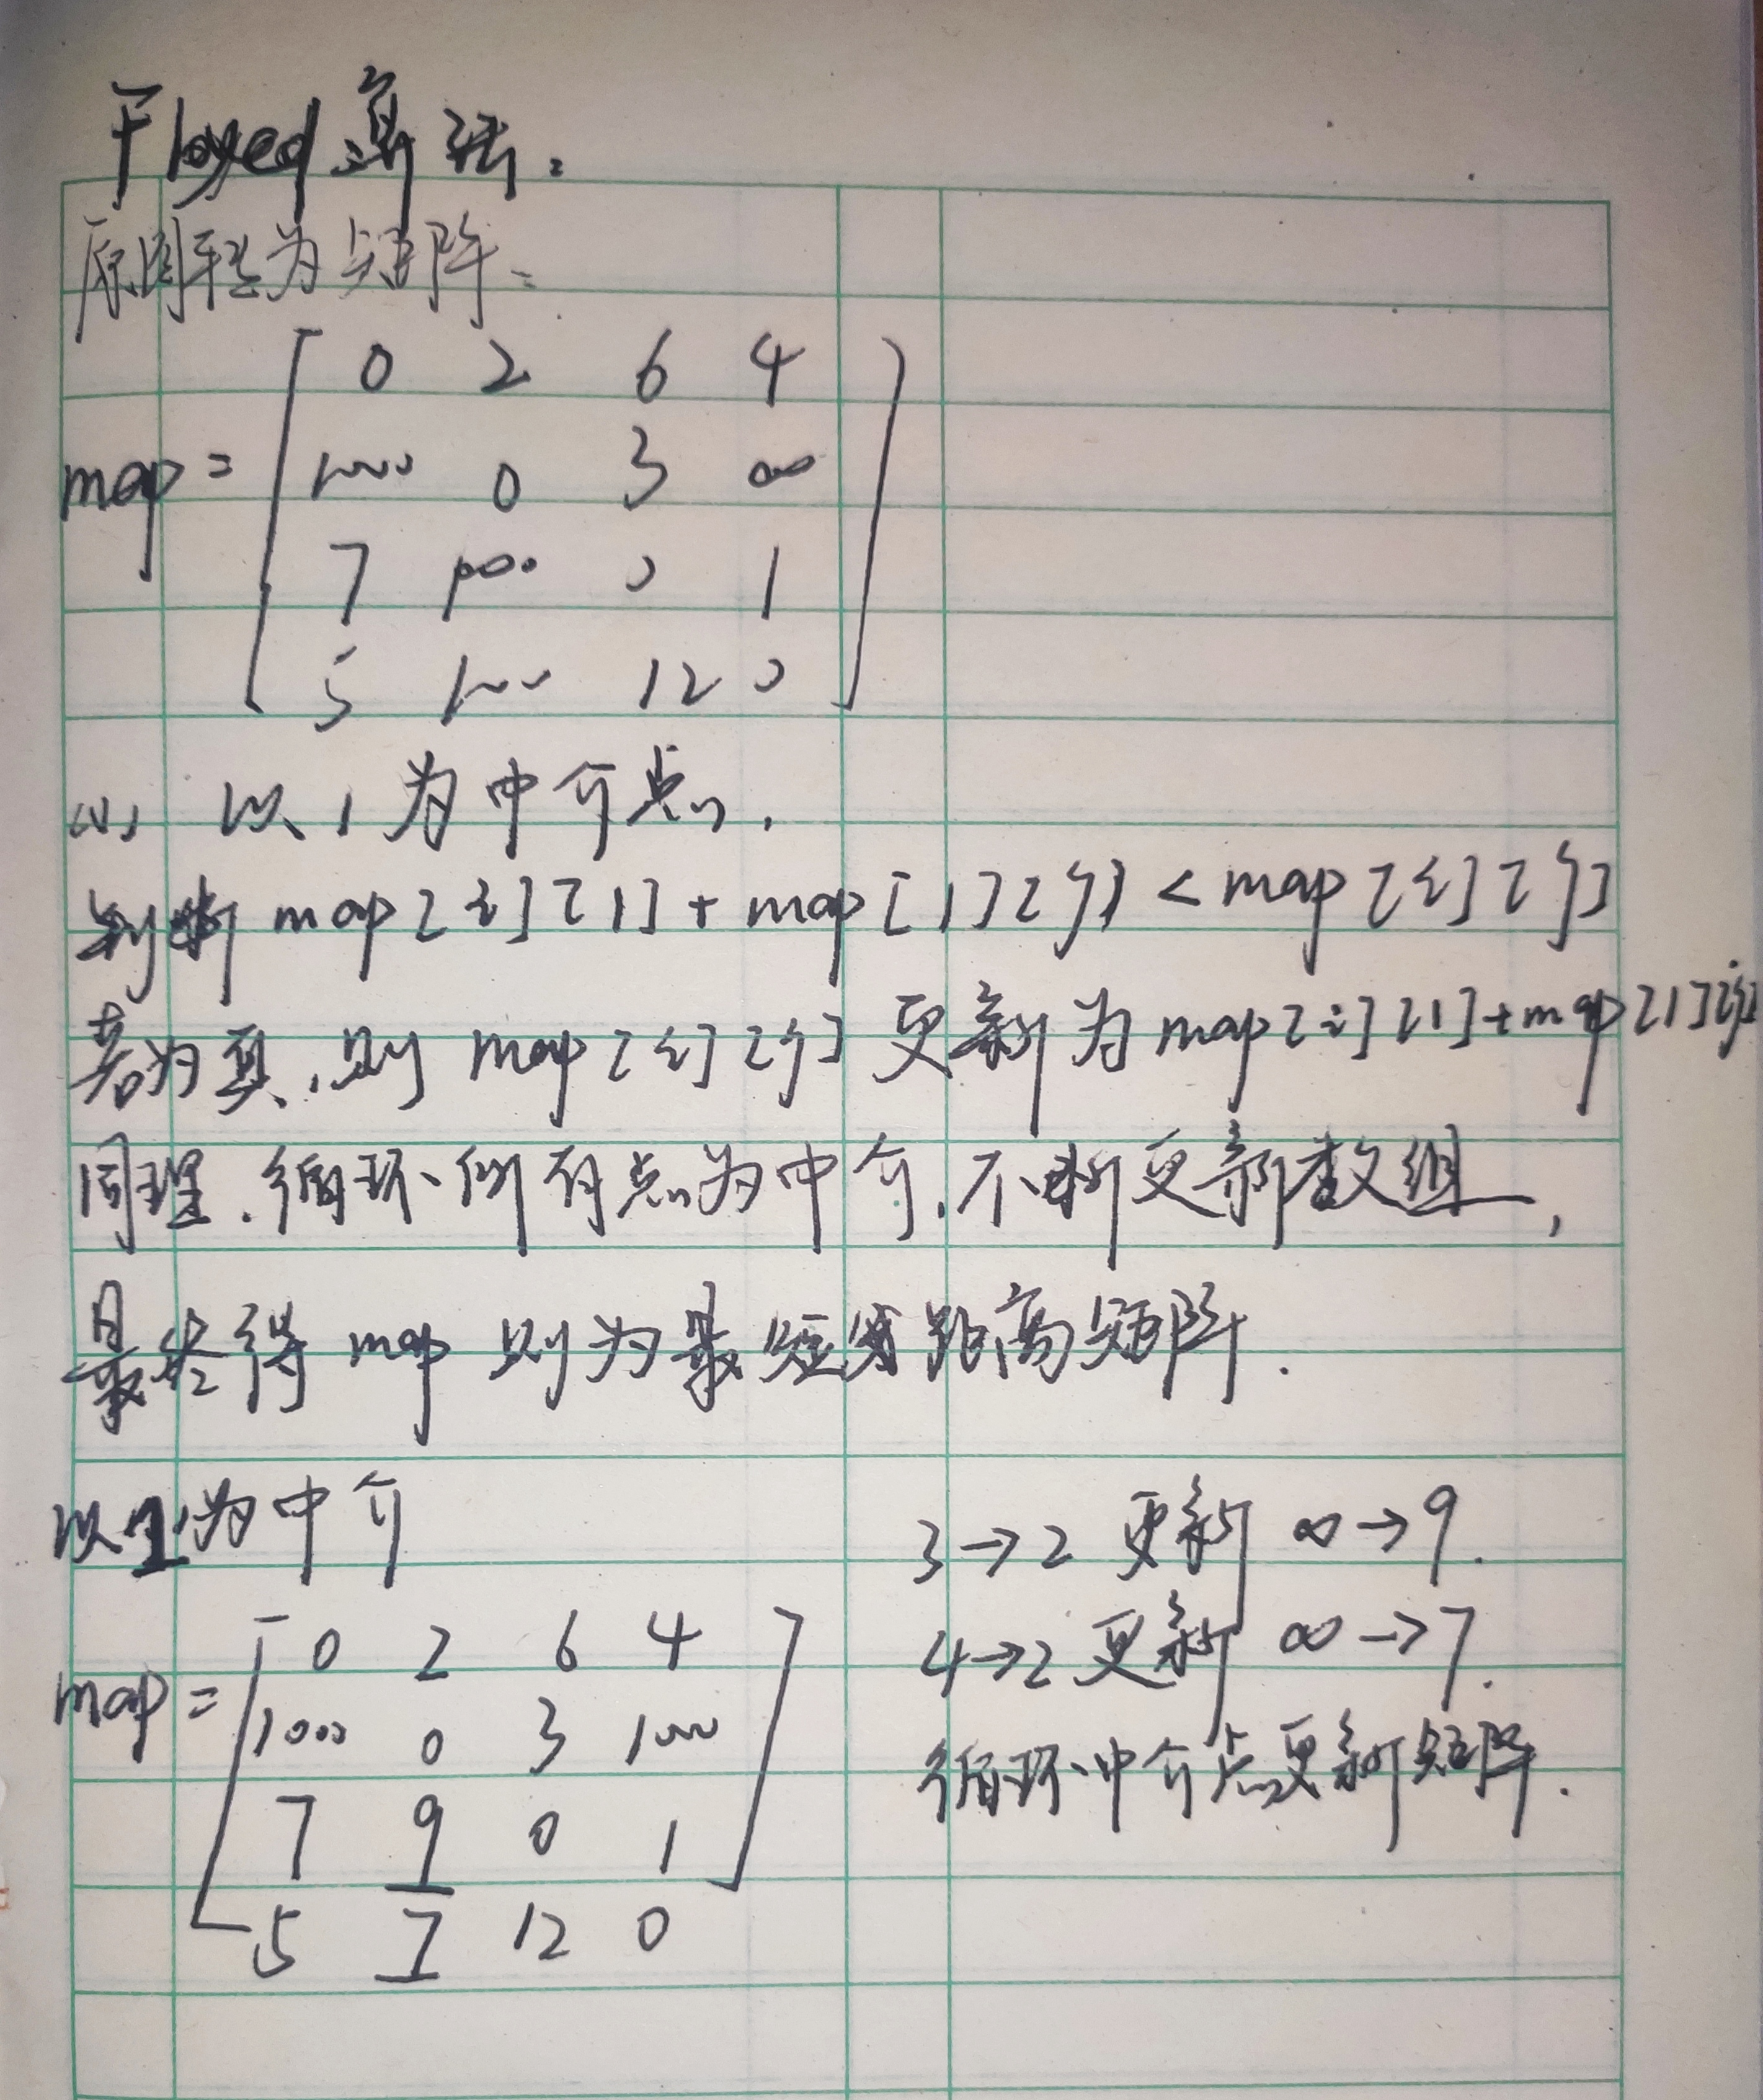 Floyed算法:
原图转为矩阵:
0 2 6 4
map = 1000 0 3 ∞
7 1000 0 1
5 1000 12 0
(1) 以1为中介点,
判断 map[i][1] + map[1][j] < map[i][j]
若为真,则 map[i][j] 更新为 map[i][1]+map[1][j]
同理.循环所有点为中介,不断更新数组,
最终得 map 则为最短距离矩阵.
以1为中介
0 2 6 4
map = 1000 0 3 1000
7 9 0 1
5 7 12 0
3→2 更新 ∞→9.
4→2 更新 ∞→7.
循环中介点更新矩阵.